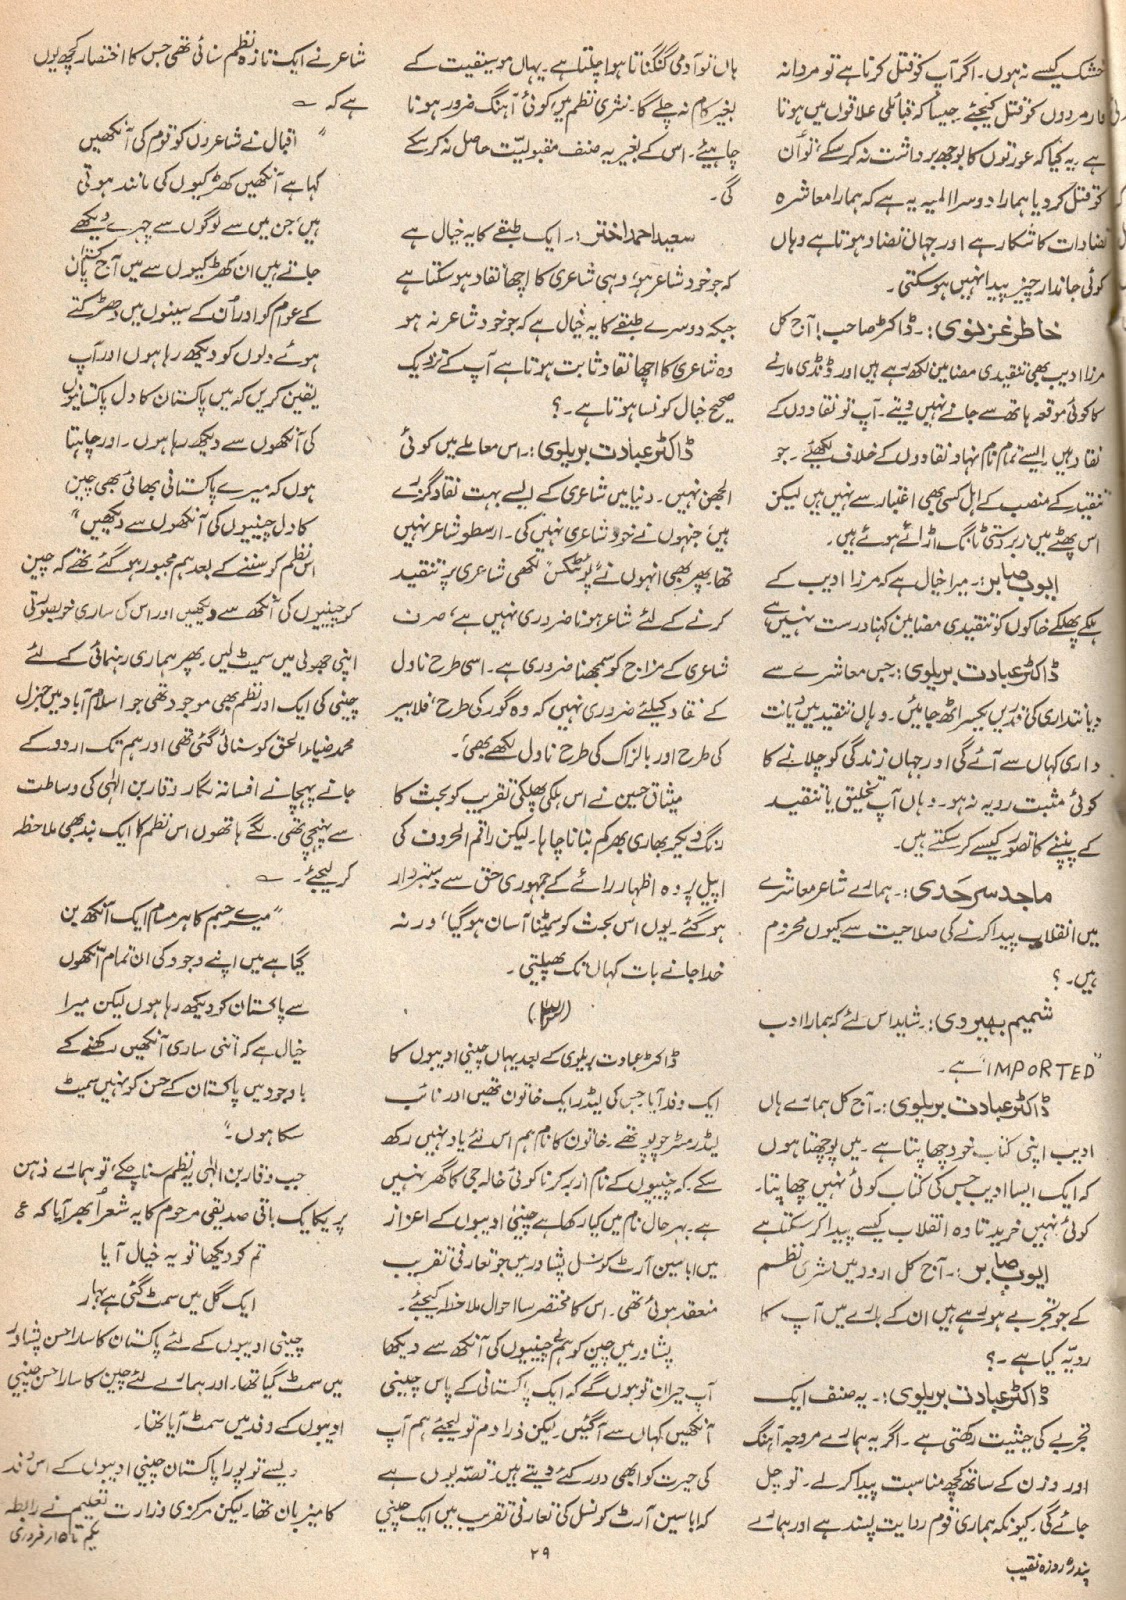 خشک کیسے نہ ہوں۔ اگر آپ کو قتل کرنا ہے تو مردانہ
وار مردوں کو قتل کیجئے جیسا کہ قبائلی علاقوں میں ہوتا
ہے۔ یہ کیا کہ عورتوں کا بوجھ برداشت نہ کر سکے تو اُن
کو قتل کر دیا ہمارا دوسرا المیہ یہ ہے کہ ہمارا معاشرہ
تضادات کا شکار ہے اور جہاں تضاد ہوتا ہے وہاں
کوئی جاندار چیز پیدا نہیں ہو سکتی۔
خاطر غزنوی:۔ ڈاکٹر صاحب! آج کل
مرزا ادیب بھی تنقیدی مضامین لکھ رہے ہیں اور ڈنڈی مارنے
کا کوئی موقعہ ہاتھ سے جانے نہیں دیتے۔ آپ تو نقادوں کے
نقاد ہیں۔ ایسے تمام نام نہاد نقادوں کے خلاف لکھیئے۔ جو
تنقید کے منصب کے اہل کسی بھی اعتبار سے نہیں ہیں لیکن
اس پھٹے میں زبردستی ٹانگ اڑائے ہوئے ہیں۔
ایوب صابر:۔ میرا خیال ہے کہ مرزا ادیب کے
ہلکے پھلکے خاکوں کو تنقیدی مضامین کہنا درست نہیں ہے
ڈاکٹر عبادت بریلوی:۔ جس معاشرے سے
دیانتداری کی قدریں یکسر اٹھ جائیں۔ وہاں تنقید میں دیانت
داری کہاں سے آئے گی اور جہاں زندگی کو چلانے کا
کوئی مثبت رویہ نہ ہو۔ وہاں آپ تخلیق یا تنقید
کے پنپنے کا تصور کیسے کر سکتے ہیں۔
ماجد سرحدی:۔ ہمارے شاعر معاشرے
میں انقلاب پیدا کرنے کی صلاحیت سے کیوں محروم
ہیں۔ ؟
شمیم بھیروی:۔ شاید اس لئے کہ ہمارا ادب
"IMPORTED" ہے۔
ڈاکٹر عبادت بریلوی:۔ آج کل ہمارے ہاں
ادیب اپنی کتاب خود چھاپتا ہے۔ میں پوچھتا ہوں
کہ ایک ایسا ادیب جس کی کتاب کوئی نہیں چھاپتا۔
کوئی نہیں خریدتا وہ انقلاب کیسے پیدا کر سکتا ہے
ایوب صابر:۔ آج کل اردو میں نثری نظم
کے جو تجربے ہو رہے ہیں ان کے بارے میں آپ کا
رویّہ کیا ہے۔ ؟
ڈاکٹر عبادت بریلوی:۔ یہ صنف ایک
تجربے کی حیثیت رکھتی ہے۔ اگر یہ ہمارے مروجہ آہنگ
اور وزن کے ساتھ کچھ مناسبت پیدا کر لے۔ تو چل
جائے گی۔ کیونکہ ہماری قوم روایت پسند ہے اور ہمارے
ہاں تو آدمی گنگناتا ہوا چلتا ہے۔ یہاں موسیقیت کے
بغیر کام نہ چلے گا۔ نثری نظم میں کوئی آہنگ ضرور ہونا
چاہیئے۔ اس کے بغیر یہ صنف مقبولیّت حاصل نہ کر سکے
گی۔
سعید احمد اختر:۔ ایک طبقے کا یہ خیال ہے
کہ جو خود شاعر ہو، وہی شاعری کا اچھا نقاد ہو سکتا ہے
جبکہ دوسرے طبقے کا یہ خیال ہے کہ جو خود شاعر نہ ہو
وہ شاعری کا اچھا نقاد ثابت ہوتا ہے آپ کے نزدیک
صحیح خیال کونسا ہوتا ہے۔ ؟
ڈاکٹر عبادت بریلوی:۔ اس معاملے میں کوئی
الجھن نہیں۔ دنیا میں شاعری کے ایسے بہت نقاد گزرے
ہیں، جنہوں نے خود شاعری نہیں کی۔ ارسطو شاعر نہیں
تھا۔ پھر بھی انہوں نے "پوئٹکس" لکھی شاعری پر تنقید
کرنے کے لئے شاعر ہونا ضروری نہیں ہے، صرف
شاعری کے مزاج کو سمجھنا ضروری ہے۔ اسی طرح ناول
کے نقاد کیلئے ضروری نہیں کہ وہ گورکی طرح، فلابیر
کی طرح اور بالزاک کی طرح ناول لکھے بھی۔
میثاق حسین نے اس ہلکی پھلکی تقریب کو بحث کا
رنگ دیکر بھاری بھرکم بنانا چاہا۔ لیکن راقم الحروف کی
اپیل پر وہ اظہار رائے کے جمہوری حق سے دستبردار
ہو گئے۔ یوں اس بحث کو سمیٹنا آسان ہو گیا، ورنہ
خدا جانے بات کہاں تک پھیلتی۔
ڈاکٹر عبادت بریلوی کے بعد یہاں چینی ادیبوں کا
ایک وفد آیا۔ جس کی لیڈر ایک خاتون تھیں اور نائب
لیڈر مسٹر چوپو تھے۔ خاتون کا نام ہم اس لئے یاد نہیں رکھ
سکے۔ کہ چینیوں کے نام ازبر کرنا کوئی خالہ جی کا گھر نہیں
ہے۔ بہر حال نام میں کیا رکھا ہے چینی ادیبوں کے اعزاز
میں اباسین آرٹ کونسل پشاور میں جو تعارفی تقریب
منعقد ہوئی تھی۔ اس کا مختصر سا احوال ملاحظہ کیجئے۔
پشاور میں چین کو ہم چینیوں کی آنکھ سے دیکھا
آپ حیران تو ہوں گے کہ ایک پاکستانی کے پاس چینی
آنکھیں کہاں سے آ گئیں۔ لیکن ذرا دم تو لیجئے ہم آپ
کی حیرت کو ابھی دور کئے دیتے ہیں۔ قصّہ یوں ہے
کہ اباسین آرٹ کونسل کی تعارفی تقریب میں ایک چینی
شاعر نے ایک تازہ نظم سنائی تھی جس کا اختصار کچھ یوں
ہے کہ
"اقبال نے شاعروں کو قوم کی آنکھیں
کہا ہے آنکھیں کھڑکیوں کی مانند ہوتی
ہیں، جن میں سے لوگوں سے چہرے دیکھے
جاتے ہیں ان کھڑکیوں سے میں آج پاکستان
کے عوام کو اور اُن کے سینوں میں دھڑکتے
ہوئے دلوں کو دیکھ رہا ہوں اور آپ
یقین کریں کہ میں پاکستان کا دل پاکستانیوں
کی آنکھوں سے دیکھ رہا ہوں۔ اور چاہتا
ہوں کہ میرے پاکستانی بھائی بھی چین
کا دل چینیوں کی آنکھوں سے دیکھیں"
اس نظم کو سننے کے بعد ہم مجبور ہو گئے تھے کہ چین
کو چینیوں کی آنکھ سے دیکھیں اور اس کی ساری خوبصورتی
اپنی جھولی میں سمیٹ لیں۔ پھر ہماری رہنمائی کے لئے
چینی کی ایک اور نظم بھی موجود تھی جو اسلام آباد میں جنرل
محمد ضیاء الحق کو سنائی گئی تھی اور ہم تک اردو کے
جانے پہچانے افسانہ نگار وقار بن الٰہی کی وساطت
سے پہنچی تھی۔ لگے ہاتھوں اس نظم کا ایک بند بھی ملاحظہ
کر لیجئے۔
"میرے جسم کا ہر مسام ایک آنکھ بن
گیا ہے میں اپنے وجود کی ان تمام آنکھوں
سے پاکستان کو دیکھ رہا ہوں لیکن میرا
خیال ہے کہ اتنی ساری آنکھیں رکھنے کے
باوجود میں پاکستان کے حسن کو نہیں سمیٹ
سکا ہوں۔"
جب وقار بن الٰہی یہ نظم سنا چکے، تو ہمارے ذہن
پر یکایک باقی صدیقی مرحوم کا یہ شعر اُبھر آیا کہ ع
تم کو دیکھا تو یہ خیال آیا
ایک گل میں سمٹ گئی ہے بہار
چینی ادیبوں کے لئے پاکستان کا سارا حسن پشاور
میں سمٹ گیا تھا۔ اور ہمارے لئے چین کا سارا حسن چینی
ادیبوں کے وفد میں سمٹ آیا تھا۔
ویسے تو پورا پاکستان چینی ادیبوں کے اس وفد
کا میزبان تھا۔ لیکن مرکزی وزارت تعلیم نے رابطہ
یکم تا ۱۵ار فروری
۲۹
پندرہ روزہ نقیب